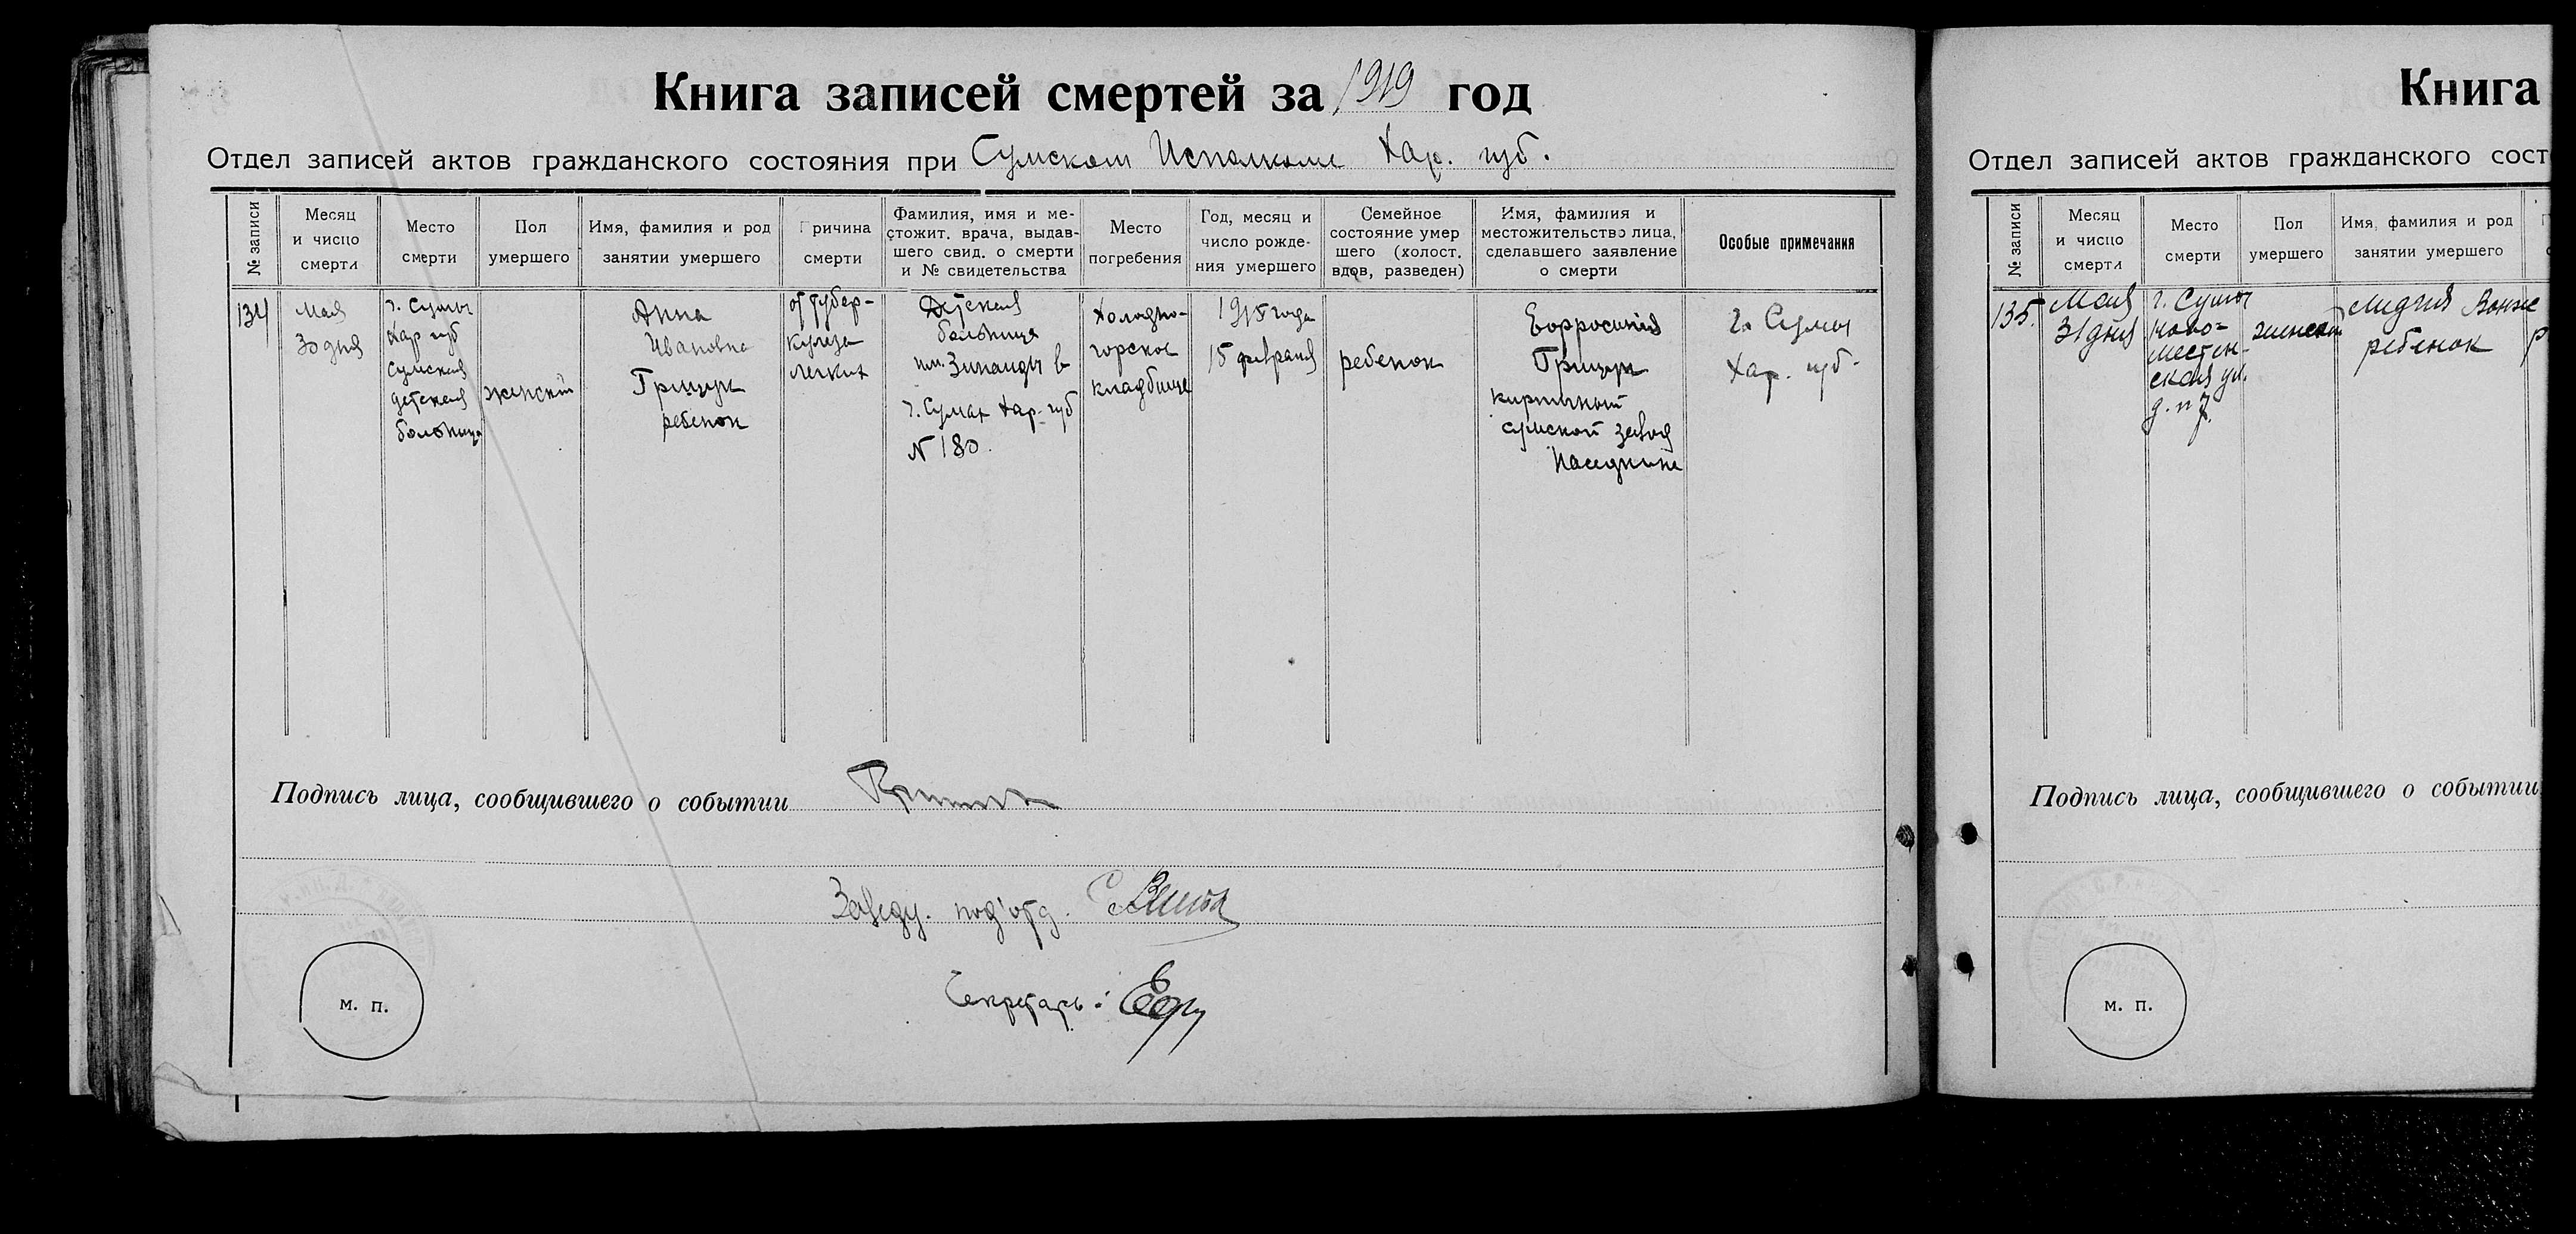 Книга записей смертей за 1919 год
Отдел записей актов гражданского состояния при Сумском Исполкоме Хар. губ.
№ записи
Месяц
и число
смерти
Место
смерти
Пол
умершего
Имя, фамилия и род
занятии умершего
Причина
смерти
Фамилия, имя и ме-
стожит. врача, выдав-
шего свид. о смерти
и № свидетельства
Место
погребения
Год, месяц и
число рожде-
ния умершего
Семейное
состояние умер
шего (холост.
вдов, разведен)
Имя, фамилия и
местожительство лица,
сделавшего заявление
о смерти
Особые примечания
134
Мая
30 дня
г. Сумы
Хар губ
Сумская
детская
больница
женский
Анна
Ивановна
Грищук
ребенок
от тубер-
кулеза
легких
Детская
больница
им. Зинаиды в
г. Сумах Хар. губ
N 180.
Холодно-
горское
кладбище
1915 года
15 февраля
ребенок
Грищук
кирпичный
сумской завод
г. Сумы
Хар. губ.
Подпись лица, сообщившего о событии
Заведу. под'отд.
Секретарь:
м. п.
Книга
Отдел записей актов гражданского сост
№ записи
Месяц
и число
смерти
Место
смерти
Пол
умершего
Имя, фамилия и род
занятии умершего
135.
Мая
31 дня
г. Сумы
Ново-
местен-
ская ул.
д. n 7.
женский
Лидия
ребенок
Подпись лица, сообщившего о событии
м. п.